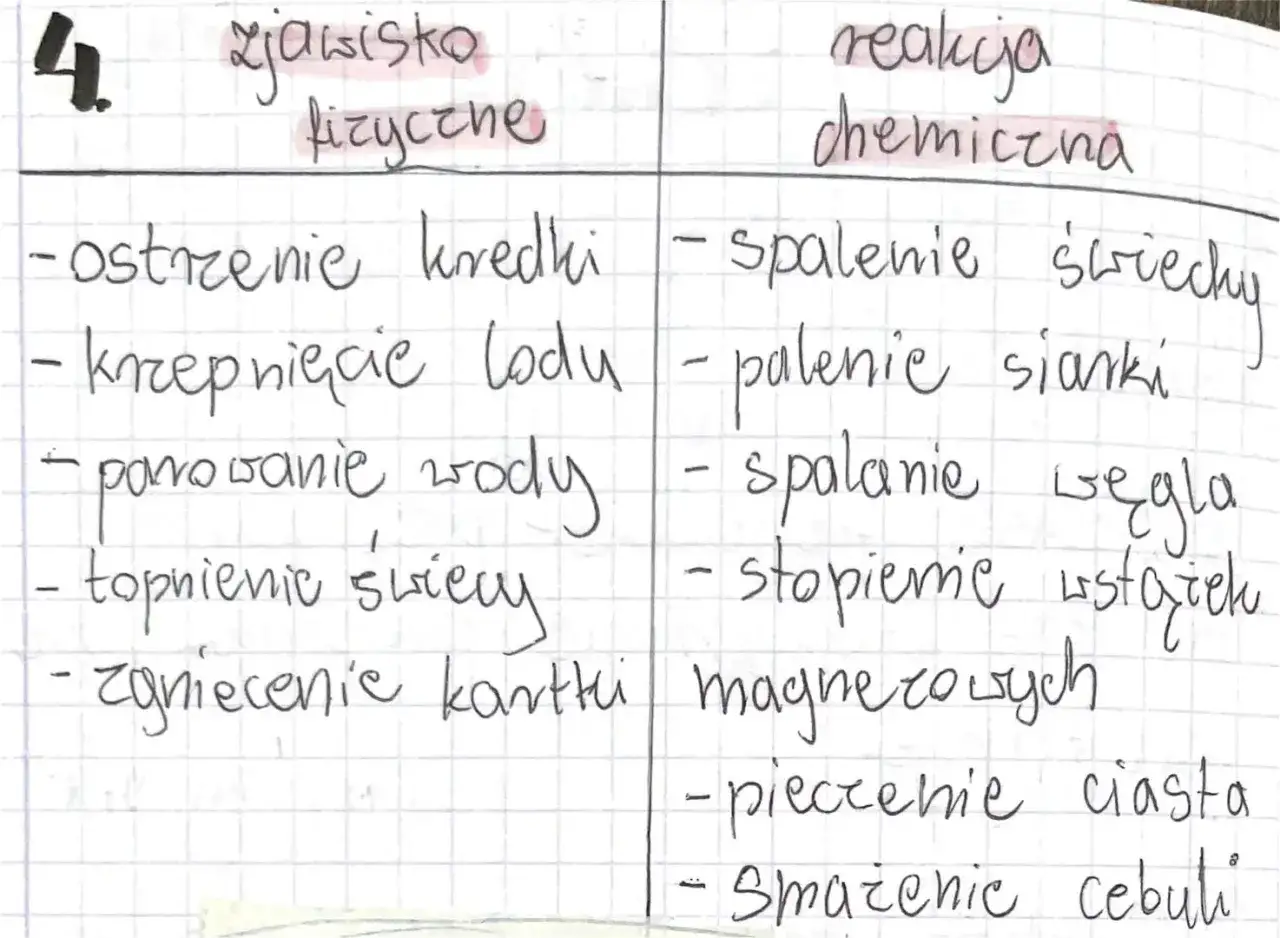 4. zjawisko fizyczne
reakcja chemiczna
- ostrzenie kredki
- krzepnięcie lodu
- parowanie wody
- topnienie świecy
- zgniecenie kartki
- spalenie świeczky
- palenie siarki
- spalanie węgla
- stopienie wstążek
magnezowych
- pieczenie ciasta
- smażenie cebuli